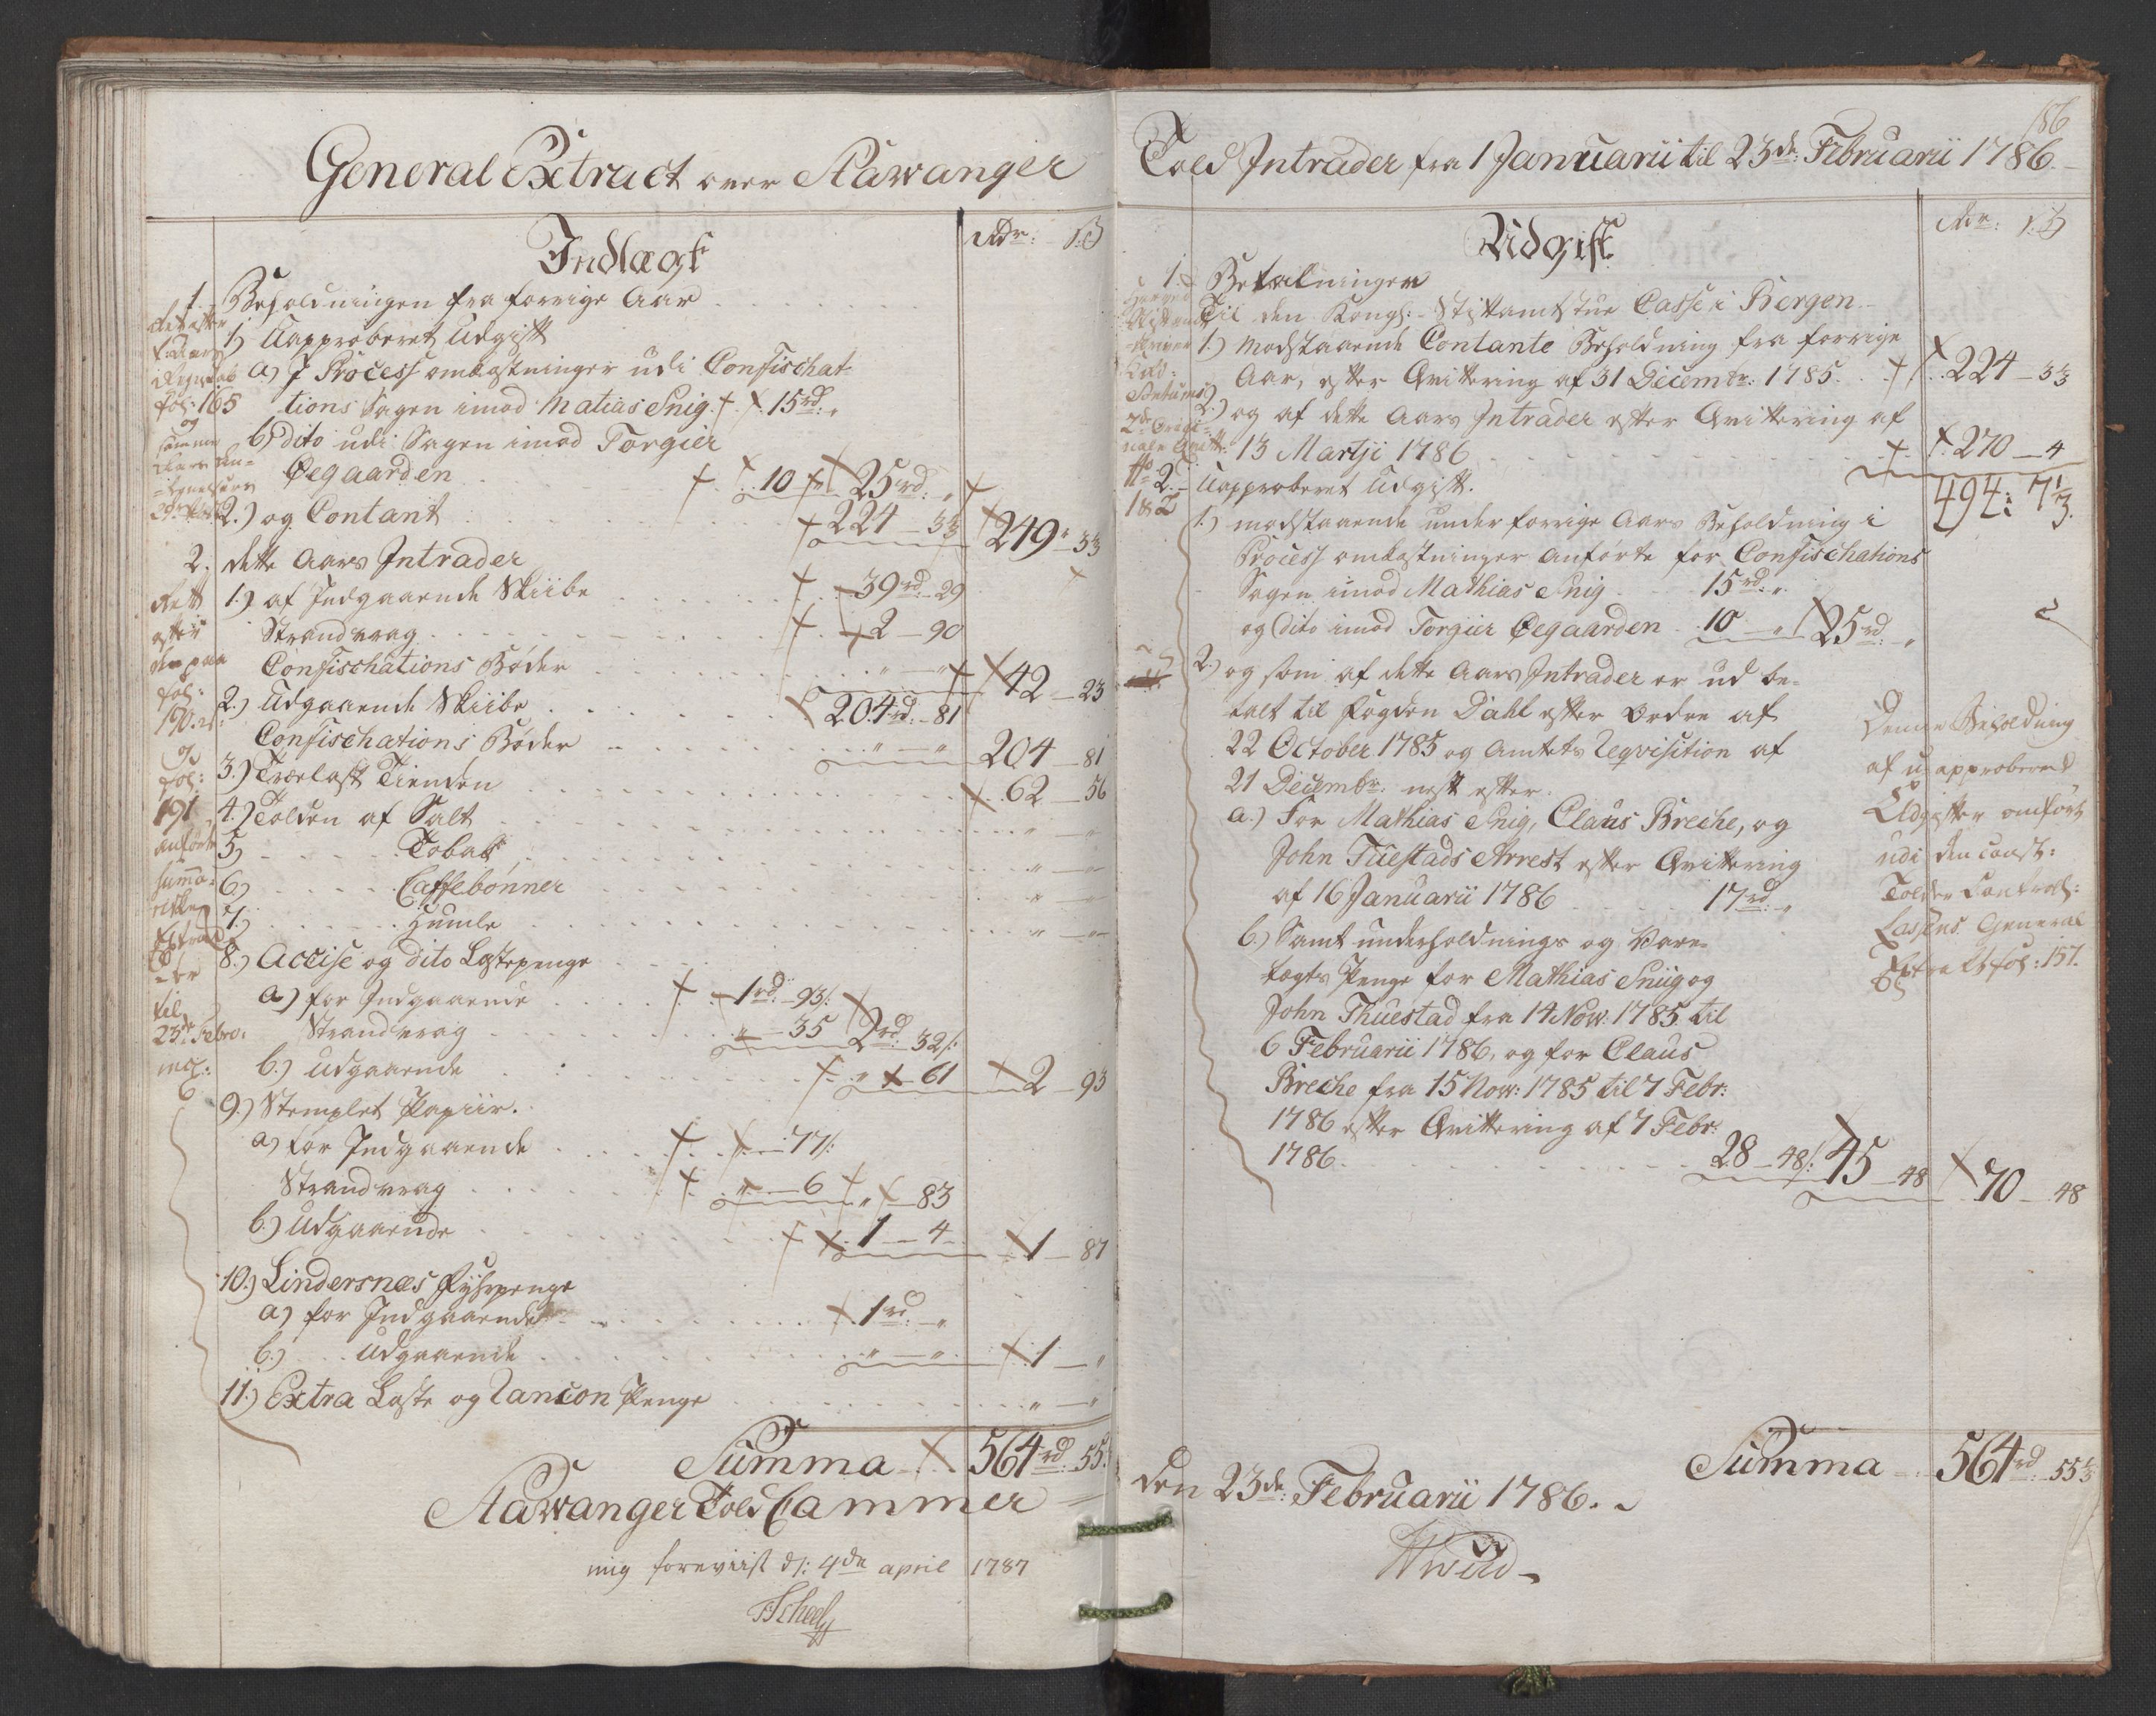 General Extract over Stawanger
Indtægt
Rdr: ß
1. Beholdningen fra forrige Aar
1) Uapproberet Udgift
a) I Process omkostninger udi Confischat-
tions Sagen imod Matias Snig. 15rd: „
b) dito udi Sagen imod Torgier
Øegaarden 10 „ 25rd: „
2.) og Contant 224 – 33 249 – 33
2. dette Aars Intrader
1.) af Indgaaende Skiibe 39rd – 29
Strandvrag 2 – 90
Confischations Bøder „ – „ 42 – 23
2.) Udgaaende Skiibe 204rd: – 81
Confischations Bøder „ – „ 204 – 81
3.) Trælast Tienden 62 – 56
4.) Tolden af Salt „ – „
5) Tobak „ – „
6) Caffebønner „ – „
7.) Humle „ – „
8.) Accise og dito Lastepenge
a) for Indgaaende 1rd: – 93ß:
Strandvrag „ – 35 2rd: 32ß:
b.) Udgaaende „ 61 2 – 93
9.) Stemplet Papiir.
a) for Indgaaende 77ß:
Strandvrag „ – 6 „ – 83
b.) Udgaaende 1 – 4 1 – 87
10.) Lindersnæs Fyhrpenge
a) for Indgaaende 1rd: – „
b.) Udgaaende „ – „ 1 – „
11.) Extra Laste og Rancon Penge „ – „
Summa 564rd: 55
Stawanger Told Cammer
mig foreviist d: 4de april 1787
Scheel
fol: 165
og
samme
2.
Rett
efter
den paa
fol:
190.
og
fol:
191
anførte
Suma-
riske
Extract
til
23de Febr:
incl:
186
Told Intrader fra 1 Januarii til 23de: Februarii 1786.
Udgift
Rdr: ß
1. Betalningen
Til den Kongl: Stiftamtstue Casse i Bergen
1.) modstaaende Contante Beholdning fra forrige
Aar, efter Qvittering af 31 Decembr: 1785. 224 – 33
2.) og af dette Aars Intrader efter Qvittering af
13 Martji 1786 270 – 4
494: 7 1/3.
2. Uapproberet Udgift.
1.) modstaaende under forrige Aars Beholdning i
Process omkostninger anførte for Confischations
Sagen imod Mathias Snig 15rd: „
og dito imod Torgier Øegaarden 10 – „ 25rd: „
2.) og som af dette Aars Intrader er ud be-
talt til Fogden Dahl efter Ordre af
22 October 1785 og Amtets Reqvisition af
21 Decembr: nest efter.
a.) For Mathias Snig, Claus Breche, og
John Tuestads Arrest efter Qvittering
af 16 Januarii 1786 17rd: „
b.) Samt underholdnings og Vare-
tægts Penge for Mathias Snig og
John Thuestad fra 14 Nov: 1785 til
6 Februarii 1786, og for Claus
Breche fra 15 Nov: 1785 til 7 Febr:
1786 efter Qvittering af 7 Febr:
1786. 28 – 48ß: 45 – 48 70 – 48
Denne Beholdning
af uapproberet
Udgifter anført
udi den const:
Tolder Controll:
Lassens General
Extract fol: 157.
Summa 564rd – 55 1/3
den 23de: Februarii 1786.